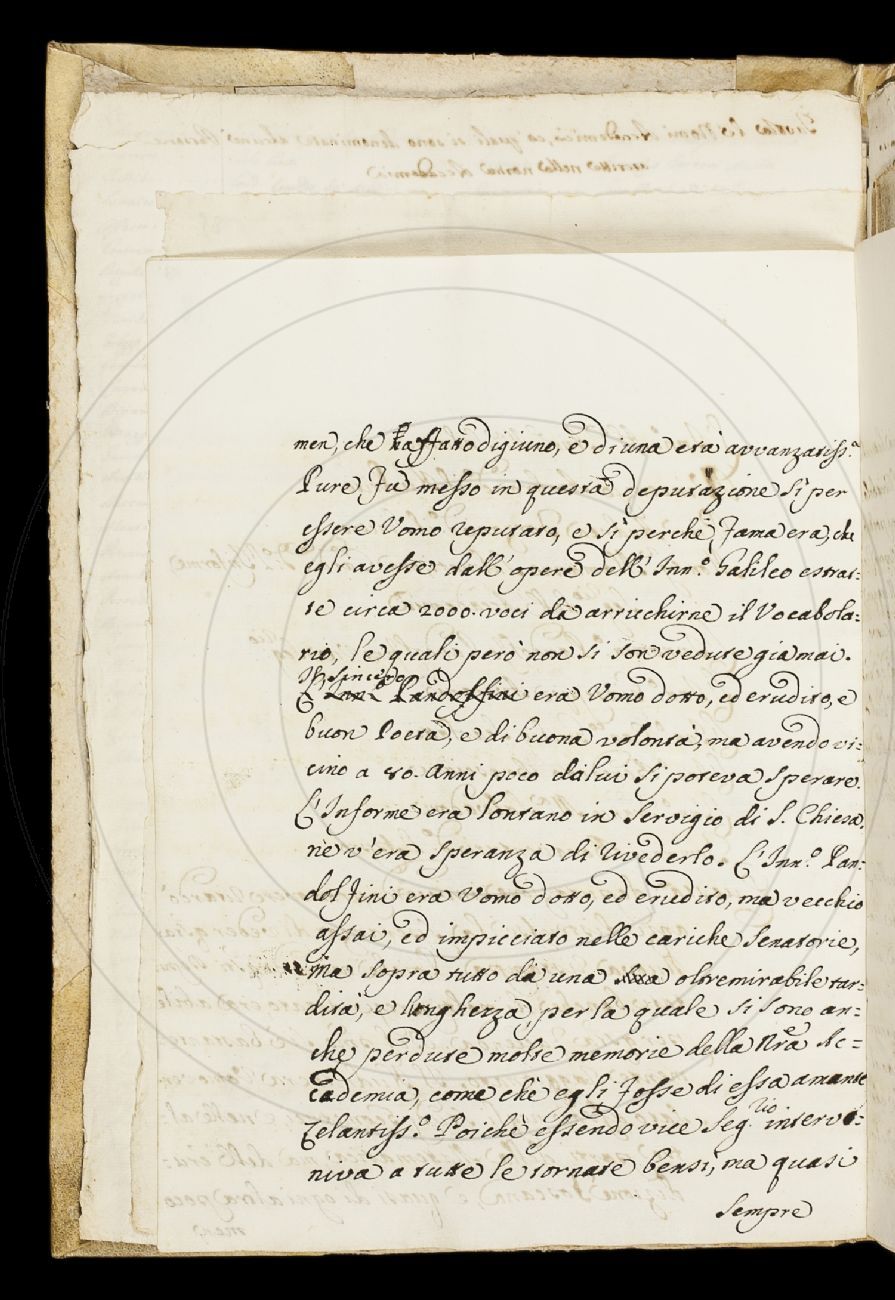 men, che affatto digiuno, e di una età avvanzatiss.ª
Pure fu messo in questa deputazione sì per
essere Uomo reputato, e sì perchè fama era, che
egli avesse dall'opere dell'Inn.º Galileo estrat:
te circa 2000. voci da arricchirne il Vocabola:
rio, le quali però non si son vedute giamai.
L'Insincero
era Uomo dotto, ed erudito, e
buon Poeta, e di buona volontà, ma avendo vi:
cino a 80. Anni poco da lui si poteva sperare.
L'Informe era lontano in servigio di S. Chiesa,
nè v'era speranza di rivederlo. L'Inn.º Pan:
dolfini era Uomo dotto, ed erudito, ma vecchio
assai, ed impicciato nelle cariche Senatorie,
ma sopra tutto da una oltremirabile tar:
dità, e lungherza per la quale si sono an:
che perdute molte memorie della Nrã Ac:
cademia, come chè egli fosse di essa amante
Zelantiss.º Poichè essendo vice Seg.rio interve:
niva a tutte le tornate bensì, ma quasi
sempre